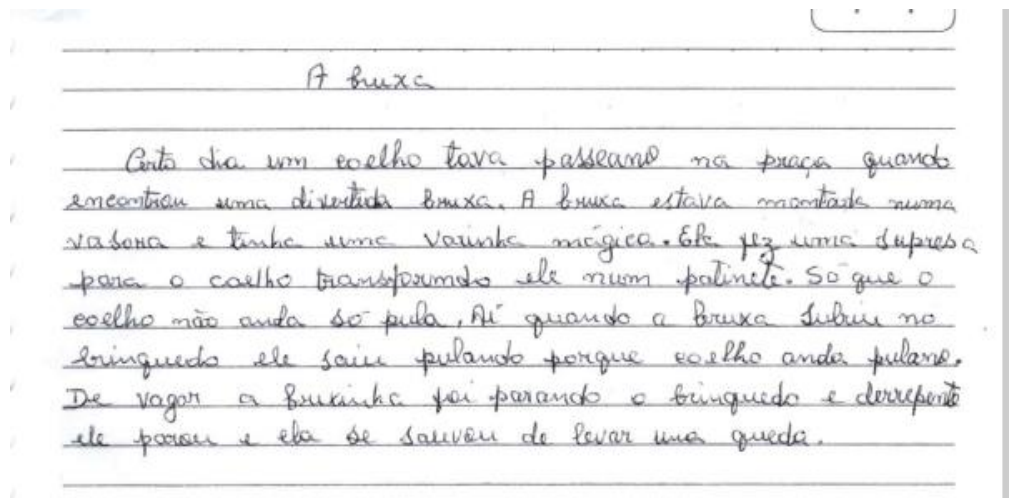 A bruxa
Certo dia um coelho tava passeano na praça quando
encontrou uma divertida bruxa. A bruxa estava montada numa
vasora e tinha uma varinha mágica. Ela fez uma supresa
para o coelho transformdo ele num patinete. Só que o
coelho não anda só pula. Aí quando a bruxa subiu no
brinquedo ele saiu pulando porque coelho anda pulano.
De vagar a bruxinha foi parando o brinquedo e derrepente
ele parou e ela se sauvou de levar uma queda.